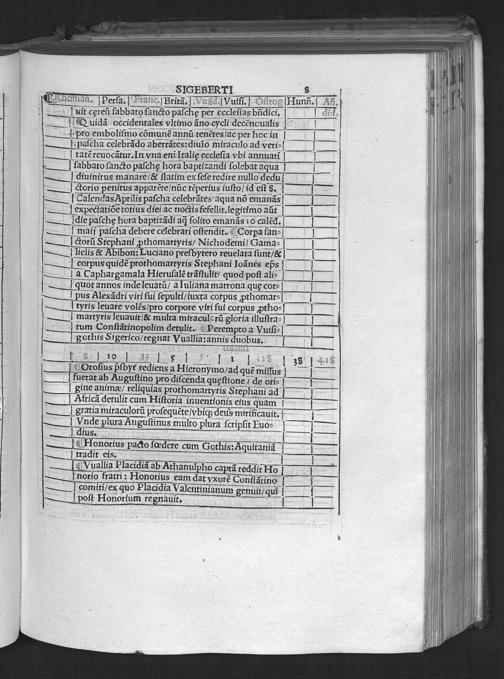 SIGEBERTI 8
Rhoman. Persa. Franc. Britã. Vuãd. Vuisi. Ostrog Hunñ. Añ.
uit cereũ sabbato sancto paschę per ecclesias bñdici. dñi.
¶Quidã occidentales vltimo ãno cycli decẽnoualis
pro embolismo cõmunẽ annũ tenẽtes/ac per hoc in
pascha celebrãdo aberrãtes: diuĩo miraculo ad veri-
tatẽ reuocãtur. In vna eni Italię ecclesia vbi annuati
sabbato sancto paschę hora baptizandi solebat aqua
diuinitus manare/& statim ex sese redire nullo dedu
ctorio penitus apparẽte/nũc tẽperius iusto/id est 8.
Calendas Aprilis pascha celebrãtes/aqua nõ emanãs
expectatiõne totius diei ac noctis fefellit. legitimo aũt
die paschę hora baptizãdi aq̃ solito emanãs 10 calẽd.
maij pascha debere celebrari ostendit. ¶Corpa san-
ctorũ Stephani ꝓthomartyris/Nichodemi/Gama-
lielis & Abibon: Luciano presbytero reuelata sunt/&
corpus quidẽ prothomartyris Stephani Ioãnes ep̃s
a Caphargamala Hierusalẽ trãstulit/ quod post ali-
quot annos inde leuatũ/ a Iuliana matrona quę cor-
pus Alexãdri viri sui sepulti/iuxta corpus ꝓthomar-
tyris leuare volẽs/pro corpore viri sui corpus ꝓtho-
martyris leuauit/& multa miraculorũ gloria illustra-
tum Constãtinopolim detulit. ¶Perempto a Vuisi-
gothis Sigerico/regnat Vuallia: annis duobus.
8 10 33 5 5 1 128 38 418
¶Orosius p̃sbyr rediens a Hieronymo/ad quẽ missus
fuerat ab Augustino pro discenda quęstione/ de ori-
gine animæ/ reliquias prothomartyris Stephani ad
Africã detulit cum Historia inuentionis eius quam
gratia miraculorũ prosequẽte/vbiq; deus mirificauit.
Vnde plura Augustinus multo plura scripsit Euo-
dius.
¶Honorius pacto fœdere cum Gothis: Aquitaniã
tradit eis.
¶Vuallia Placidiã ab Athanulpho captã reddit Ho
norio fratri: Honorius eam dat vxorẽ Constãtino
comiti/ex quo Placidia Valentinianum genuit/qui
post Honorium regnauit.